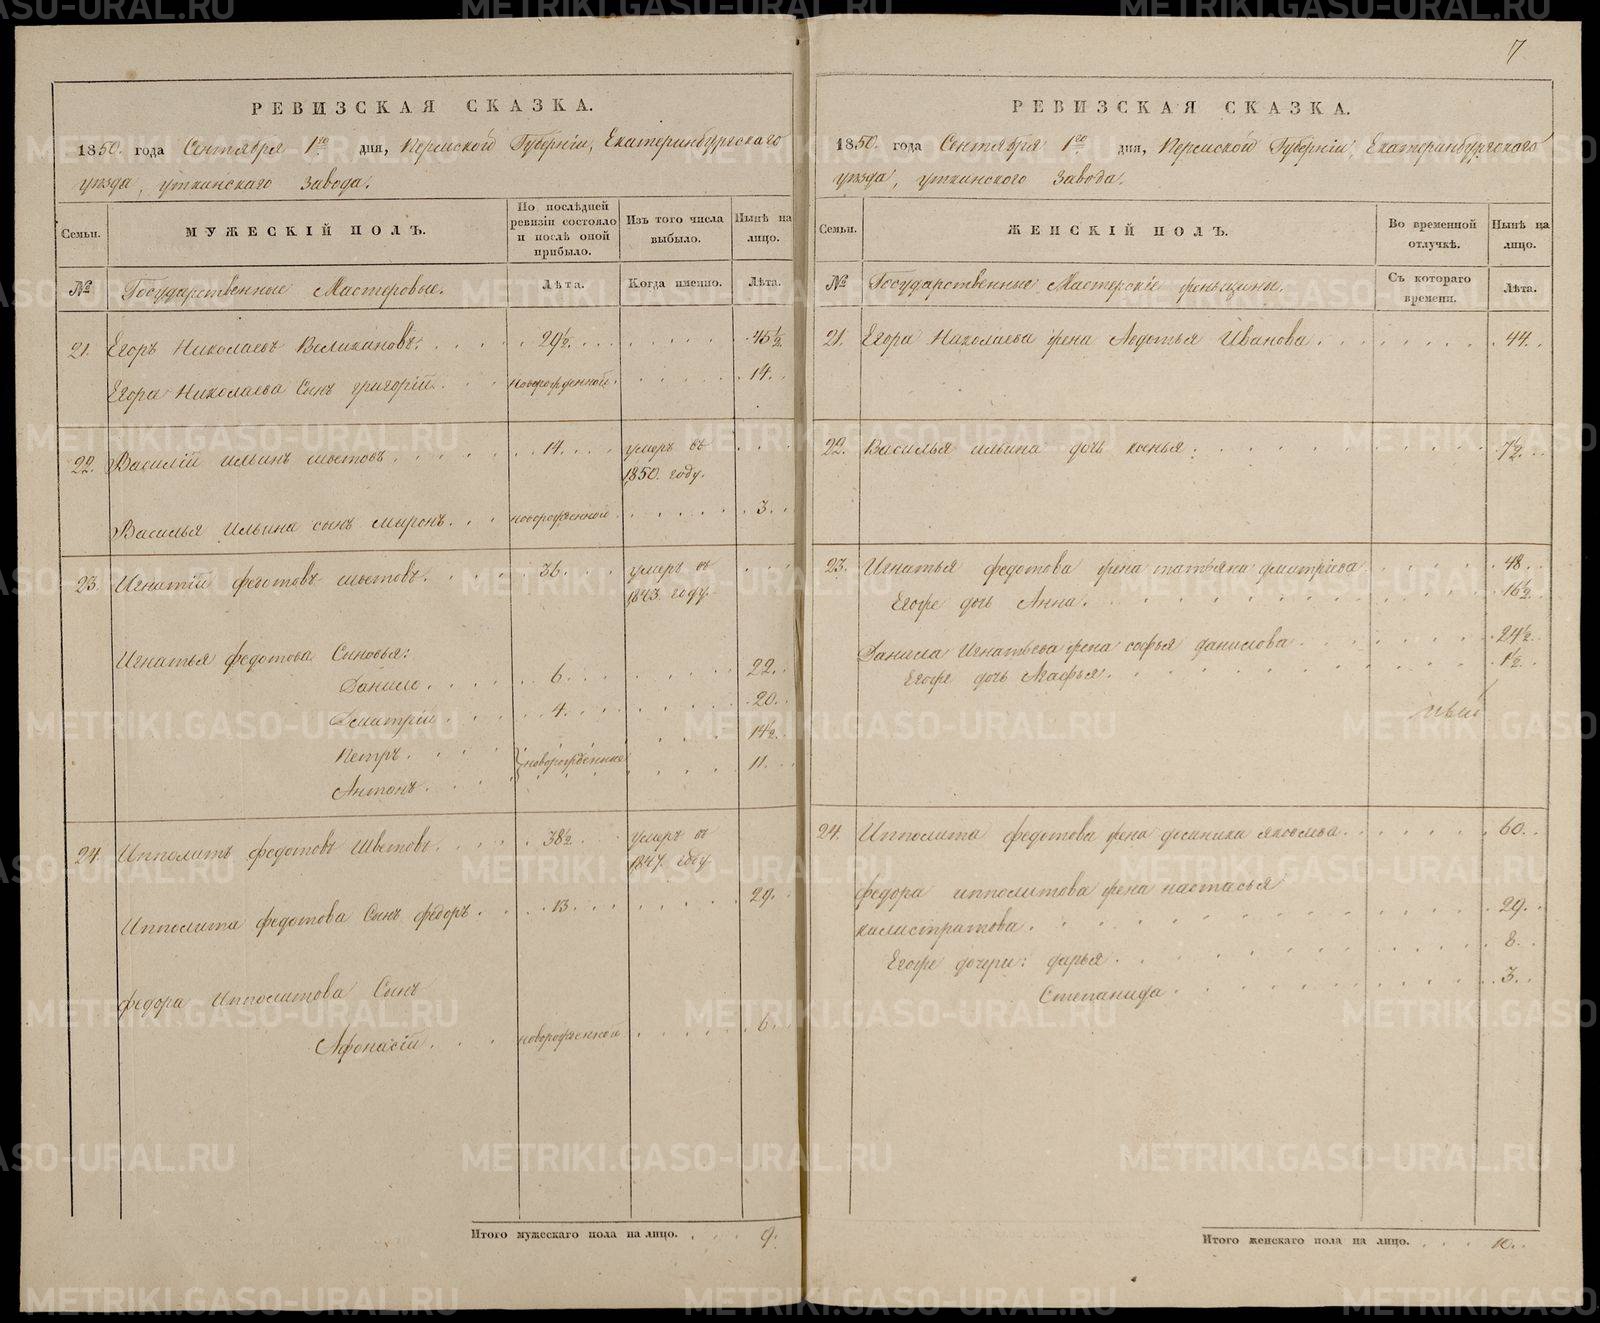 7
РЕВИЗСКАЯ СКАЗКА.
1850. года Сентября 1го дня, Пермской Губерніи, Екатеринбургскаго
уѣзда, уткинскаго завода.
Семьи.
МУЖЕСКІЙ ПОЛЪ.
По послѣдней ревизіи состояло и послѣ оной прибыло.
Изъ того числа выбыло.
Нынѣ на лицо.
№
Государственные Мастеровые.
Лѣта.
Когда именно.
Лѣта.
21. Егоръ Николаевъ Великановъ. 29½. 45½
Егора Николаева Сынъ григорій. новорожденной. 14.
22. Василій ильинъ шветовъ. 14. умеръ въ
1850. году.
Василья Ильина сынъ миронъ. новорожденной 3.
23. Игнатій федотовъ шветовъ. 36. умеръ въ
1843. году.
Игнатья федотова Сыновья:
Данило. 6. 22.
Дмитрій 4. 20.
Петръ. 14½.
новорожденные
Антонъ. 11.
24. Ипполитъ федотовъ Шветовъ. 38½. умеръ въ
1847. году
Ипполита федотова Сынъ федоръ. 13. 29.
федора Ипполитова Сынъ
Афонасій. новорожденной 6.
Итого мужескаго пола на лицо. 9.
РЕВИЗСКАЯ СКАЗКА.
1850. года Сентября 1го дня, Пермской Губерніи, Екатеринбургскаго
уѣзда, уткинскаго завода.
Семьи.
ЖЕНСКІЙ ПОЛЪ.
Во временной отлучкѣ.
Нынѣ на лицо.
№
Государственные Мастерскіе женьщины.
Съ котораго времени.
Лѣта.
21. Егора Николаева жена Авдотья Иванова. 44.
22. Василья ильина дочь ксенья. 7½.
23. Игнатья федотова жена татьяна дмитріева 48.
Егоже дочь Анна. 16½.
Данила Игнатьева жена софья данилова 24½.
Егоже дочь Агафья. 1½.
24. Ипполита федотова жена домника яковлева. 60.
федора ипполитова жена настасья
калистратова. 29.
Егоже дочери: дарья. 8.
Степанида. 3.
Итого женскаго пола на лицо. 10.
METRIKI.GASO-URAL.RU